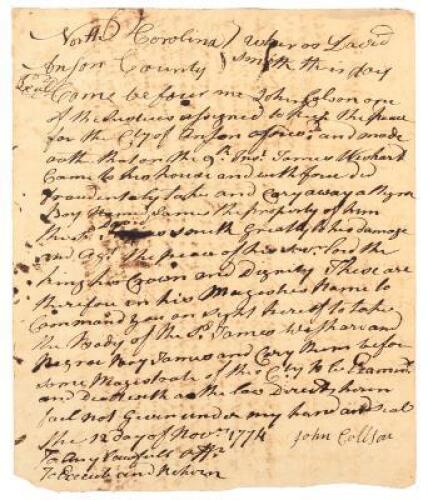 North Carolina } Whereas David
Anson County } Smith this day
Came before me John Colson one
of the Justices assigned to keep the peace
for the Cty of Anson afores.d and made
oath that on the 9th Ins.t James
Came to his house and with force did
fraudently take and Cary away a Negroe
Boy Name James the property of him
the s.d David Smith Greatly to his damage
and Ag.t the peace of his Sov.r lord the
king his Crown and Dignity These are
therefore in his Majesties Name to
Command you on sight hereof to take
the Body of the s.d James and
Negroe Boy James and Cary them before
some Magistrate of this Cty to be Examin.d
and Dealt with as the law Directs herein
fail not Given under my hand and seal
the 12 day of Nov.r 1774 John Collson
To any Lawfull off.r
To Execute and Return